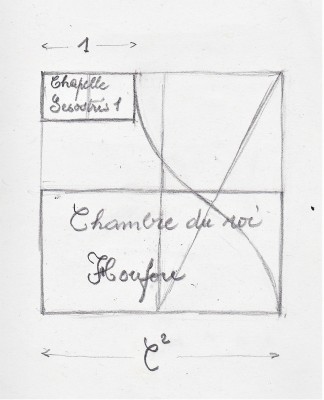 1
Chapelle
Sesostris 1
Chambre du roi
Houfou